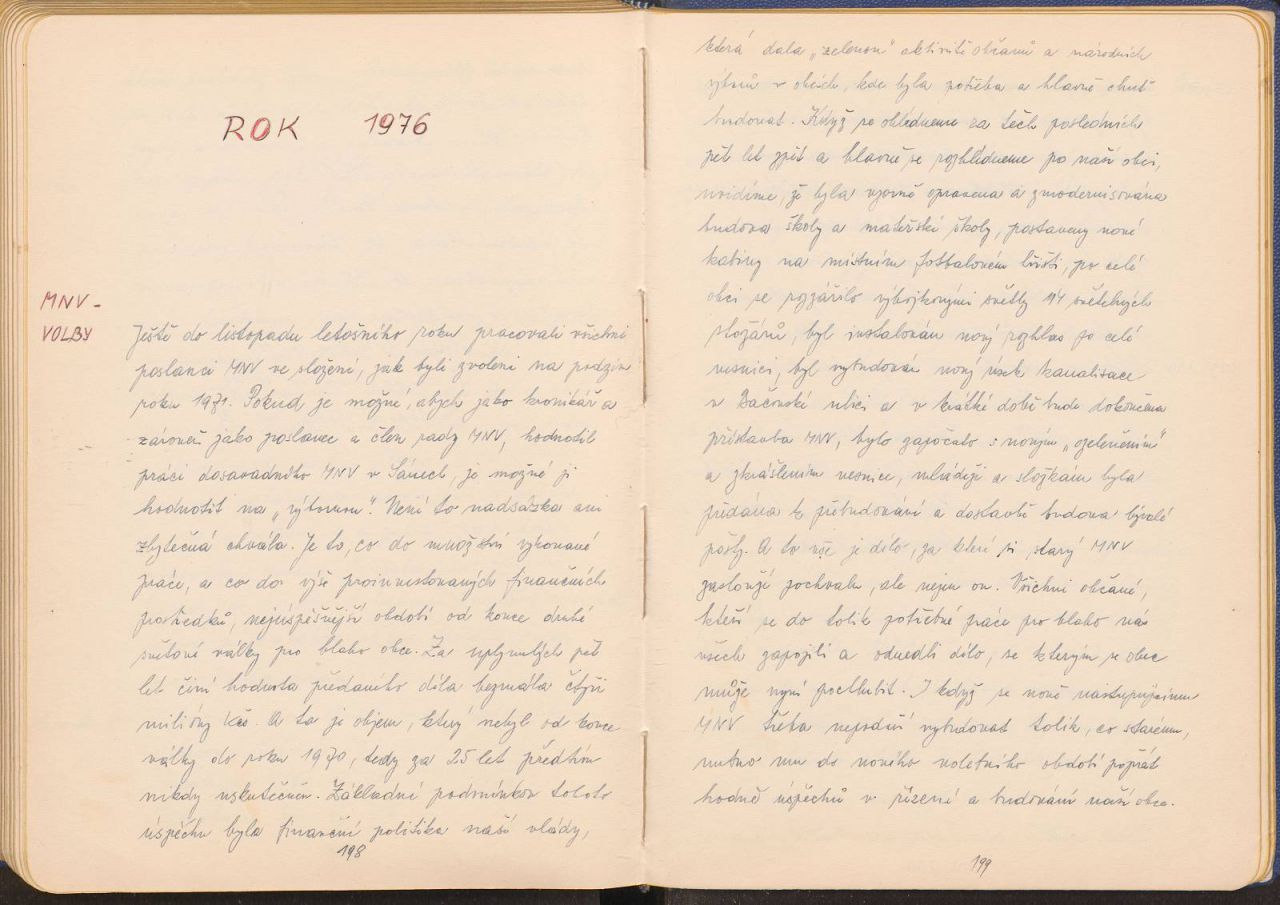 ROK 1976
MNV-
VOLBY
Ještě do listopadu letošního roku pracovali všichni
poslanci MNV ve složení, jak byli zvoleni na podzim
roku 1971. Pokud je možné, abych jako kronikář a
zároveň jako poslanec a člen rady MNV, hodnotil
práci dosavadního MNV v Sánech, je možné ji
hodnotit na „výbornou". Není to nadsázka ani
zbytečná chvála. Je to, co do množství vykonané
práce, a co do výše proinvestovaných finančních
prostředků, nejúspěšnější období od konce druhé
světové války pro blaho obce. Za uplynulých pět
let činí hodnota předaného díla bezmála čtyři
milióny Kčs. A to je objem, který nebyl od konce
války do roku 1970, tedy za 25 let předtím
nikdy uskutečněn. Základní podmínkou tohoto
úspěchu byla finanční politika naší vlády,
198
která dala „zelenou" aktivitě občanů a národních
výborů v obcích, kde byla potřeba a hlavně chuť
budovat. Když se ohlédneme za těch posledních
pět let zpět a hlavně se rozhlédneme po naší obci,
uvidíme, že byla vzorně opravena a zmodernisována
budova školy a mateřské školy, postaveny nové
kabiny na místním fotbalovém hřišti, po celé
obci se rozzářilo výbojkovými světly 114 světelných
stožárů, byl instalován nový rozhlas po celé
vesnici, byl vybudován nový úsek kanalisace
v Bačovské ulici a v krátké době bude dokončena
přístavba MNV, bylo započato s novým „ozeleněním"
a zkrášlením vesnice, mládeži a složkám byla
předána k přebudování a dostavbě budova bývalé
pošty. A to vše je dílo, za které si starý MNV
zaslouží pochvalu, ale nejen on. Všichni občané,
kteří se do tolik potřebné práce pro blaho nás
všech zapojili a odvedli dílo, se kterým se obec
může nyní pochlubit. I když se nově nastupujícímu
MNV třeba nepodaří vybudovat tolik, co starému,
nutno mu do nového volebního období popřát
hodně úspěchů v řízení a budování naší obce.
199